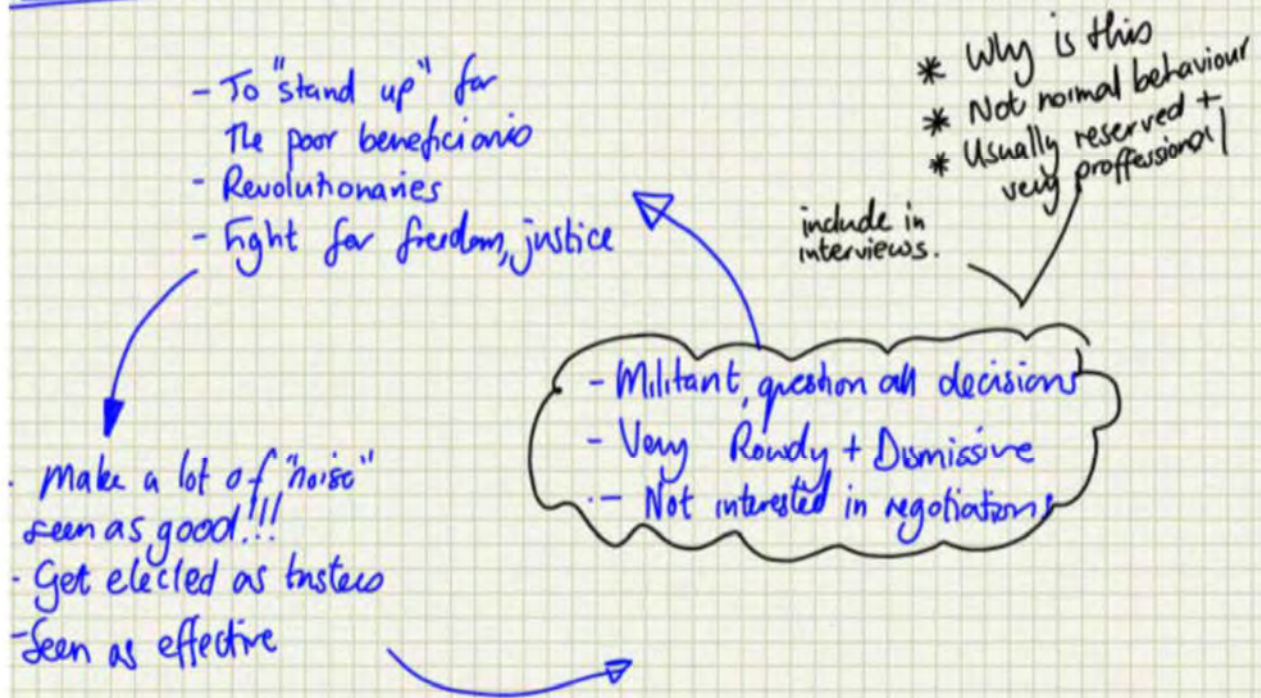 - To "stand up" for
The poor beneficiario
- Revolutionaries
- Fight for freedom, justice
* Why is this
* Not normal behaviour
* Usually reserved +
very proffessional
include in
interviews.
- Militant, question all decisions
- Very Rowdy + Dismissive
- Not interested in negotiations
- Make a lot of "noise"
seen as good!!!
- Get elected as
- Seen as effective